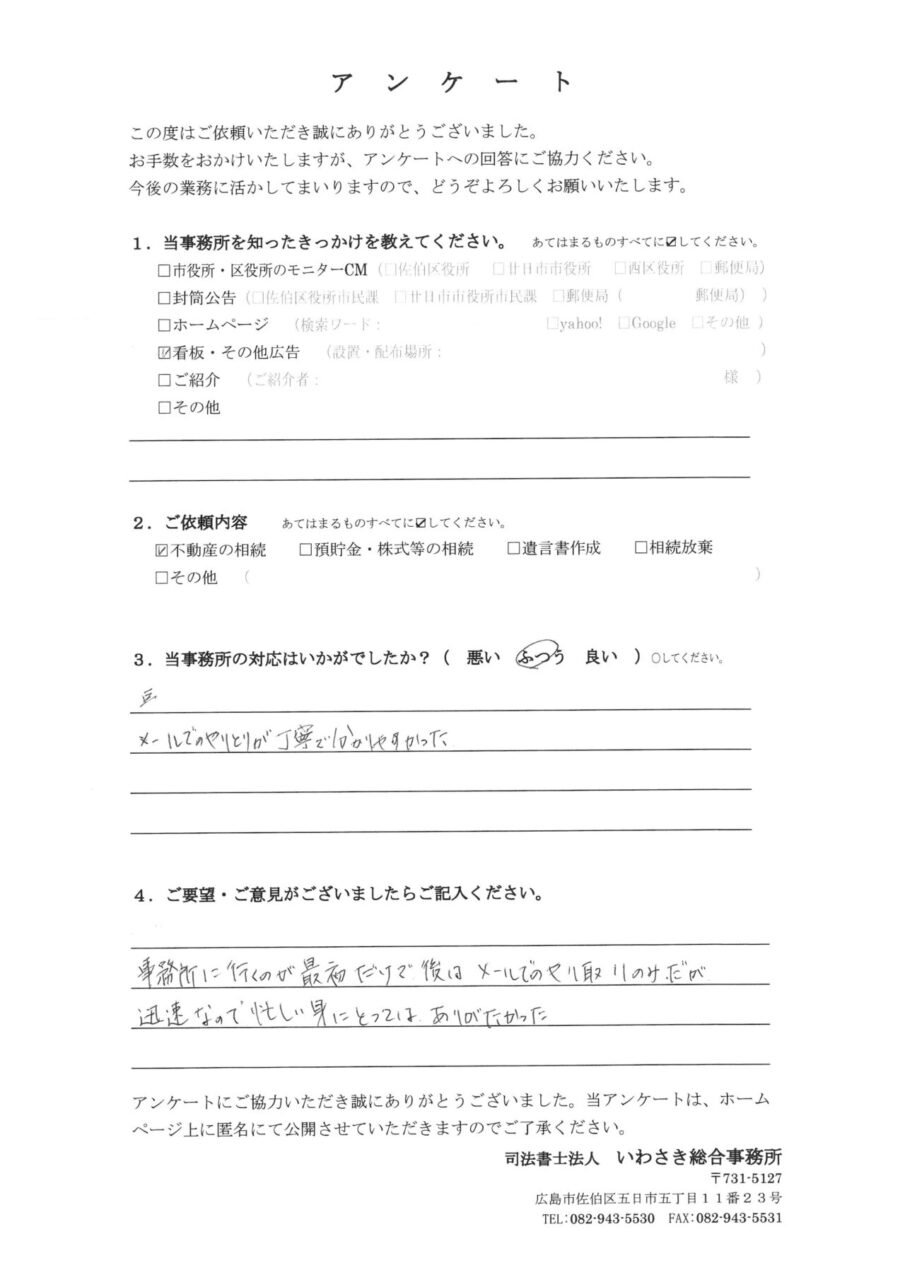 アンケート
この度はご依頼いただき誠にありがとうございました。
お手数をおかけいたしますが、アンケートへの回答にご協力ください。
今後の業務に活かしてまいりますので、どうぞよろしくお願いいたします。
１．当事務所を知ったきっかけを教えてください。 あてはまるものすべてに☑してください。
□市役所・区役所のモニターCM（□佐伯区役所 □廿日市市役所 □西区役所 □郵便局）
□封筒公告（□佐伯区役所市民課 □廿日市市役所市民課 □郵便局（ 郵便局） ）
□ホームページ （検索ワード： □yahoo! □Google □その他 ）
☑看板・その他広告 （設置・配布場所： ）
□ご紹介 （ご紹介者： 様 ）
□その他
２．ご依頼内容 あてはまるものすべてに☑してください。
☑不動産の相続 □預貯金・株式等の相続 □遺言書作成 □相続放棄
□その他 （ ）
３．当事務所の対応はいかがでしたか？（ 悪い ふつう 良い ）○してください。
メールでのやりとりが丁寧で分かりやすかった
４．ご要望・ご意見がございましたらご記入ください。
事務所に行くのが最初だけで後はメールでのやり取りのみだが
迅速なので忙しい身にとっては ありがたかった
アンケートにご協力いただき誠にありがとうございました。当アンケートは、ホーム
ページ上に匿名にて公開させていただきますのでご了承ください。
司法書士法人 いわさき総合事務所
〒731-5127
広島市佐伯区五日市五丁目１１番２３号
TEL:082-943-5530 FAX:082-943-5531